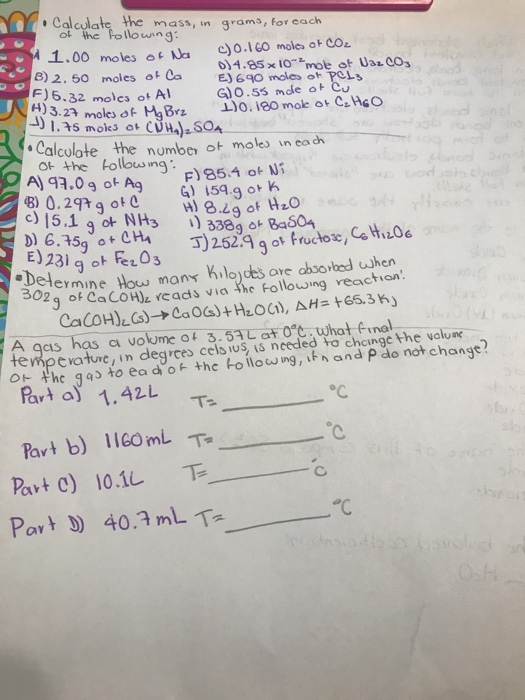 • Calculate the mass, in grams, for each
of the following:
A 1.00 moles of Na
C) 0.160 moles of CO2
B) 2.50 moles of Ca
D) 4.85 x 10-2 mole of Na2 CO3
E) 690 moles of PCL3
F) 5.32 moles of Al
G) 0.55 mole of Cu
H) 3.27 moles of MgBr2
I) 0.180 mole of C2H6O
J) 1.75 moles of (NH4)2 SO4
• Calculate the number of moles in each
of the following:
A) 97.0g of Ag
F) 85.4 of Ni
B) 0.297 g of C
G) 159.g of K
C) 15.1 g of NH3
H) 8.2g of H2O
D) 6.75g of CH4
I) 338g of BaSO4
E) 231 g of Fe2O3
J) 252.9 g of fructose, C6H12O6
• Determine How many Kilojoles are absorbed when
302g of Ca(OH)2 reacds via the following reaction:
Ca(OH)2(s) → CaO(s) + H2O(l), ΔH = +65.3 KJ
A gas has a volume of 3.57L at 0°C. What final
temperature, in degrees celsius, is needed to change the volume
of the gas to each of the following, if n and P do not change?
Part a) 1.42L T= ______ °C
Part b) 1160 mL T= ______ °C
Part C) 10.1L T= ______ °C
Part D) 40.7 mL T= ______ °C